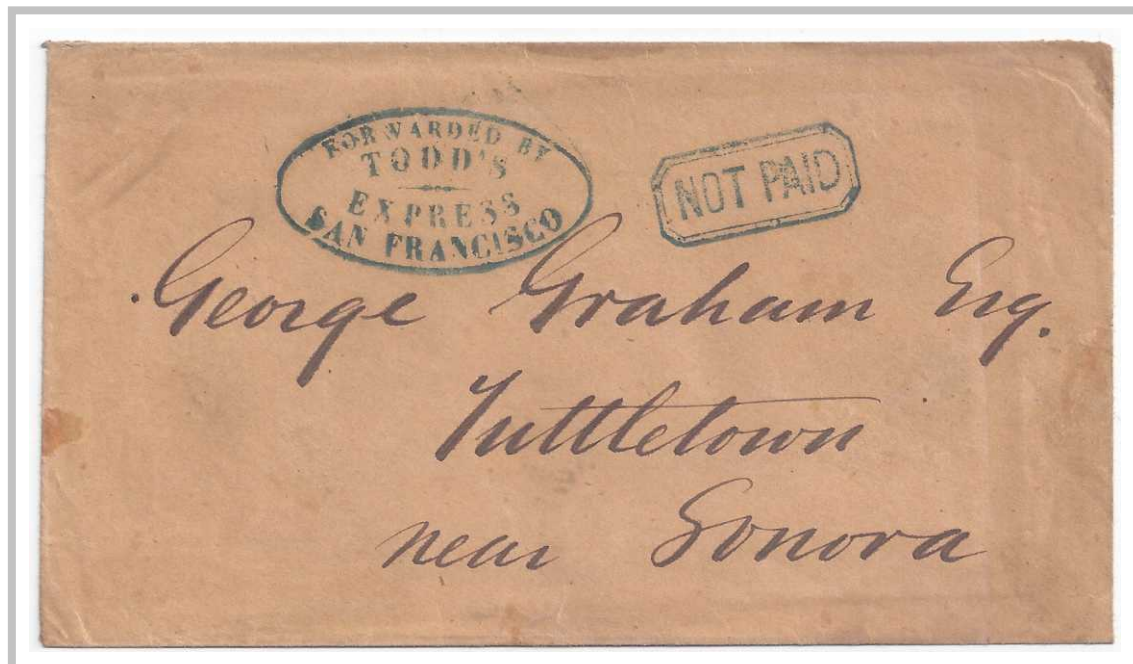 FORWARDED BY
TODD'S
EXPRESS
SAN FRANCISCO
NOT PAID
George Graham Esq.
Tuttletown
near Sonora